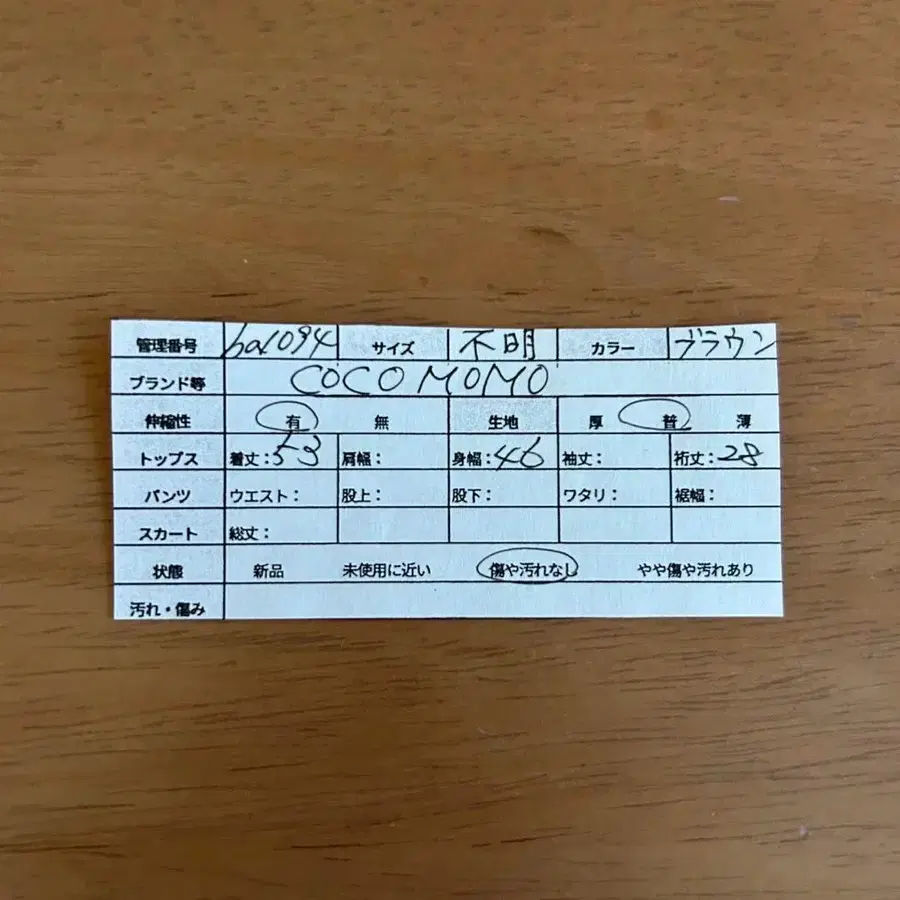 管理番号 ba1094 サイズ 不明 カラー ブラウン
ブランド等 COCO MOMO
伸縮性 有 無 生地 厚 普 薄
トップス 着丈:53 肩幅: 身幅:46 袖丈: 裄丈:28
パンツ ウエスト: 股上: 股下: ワタリ: 裾幅:
スカート 総丈:
状態 新品 未使用に近い 傷や汚れなし やや傷や汚れあり
汚れ・傷み